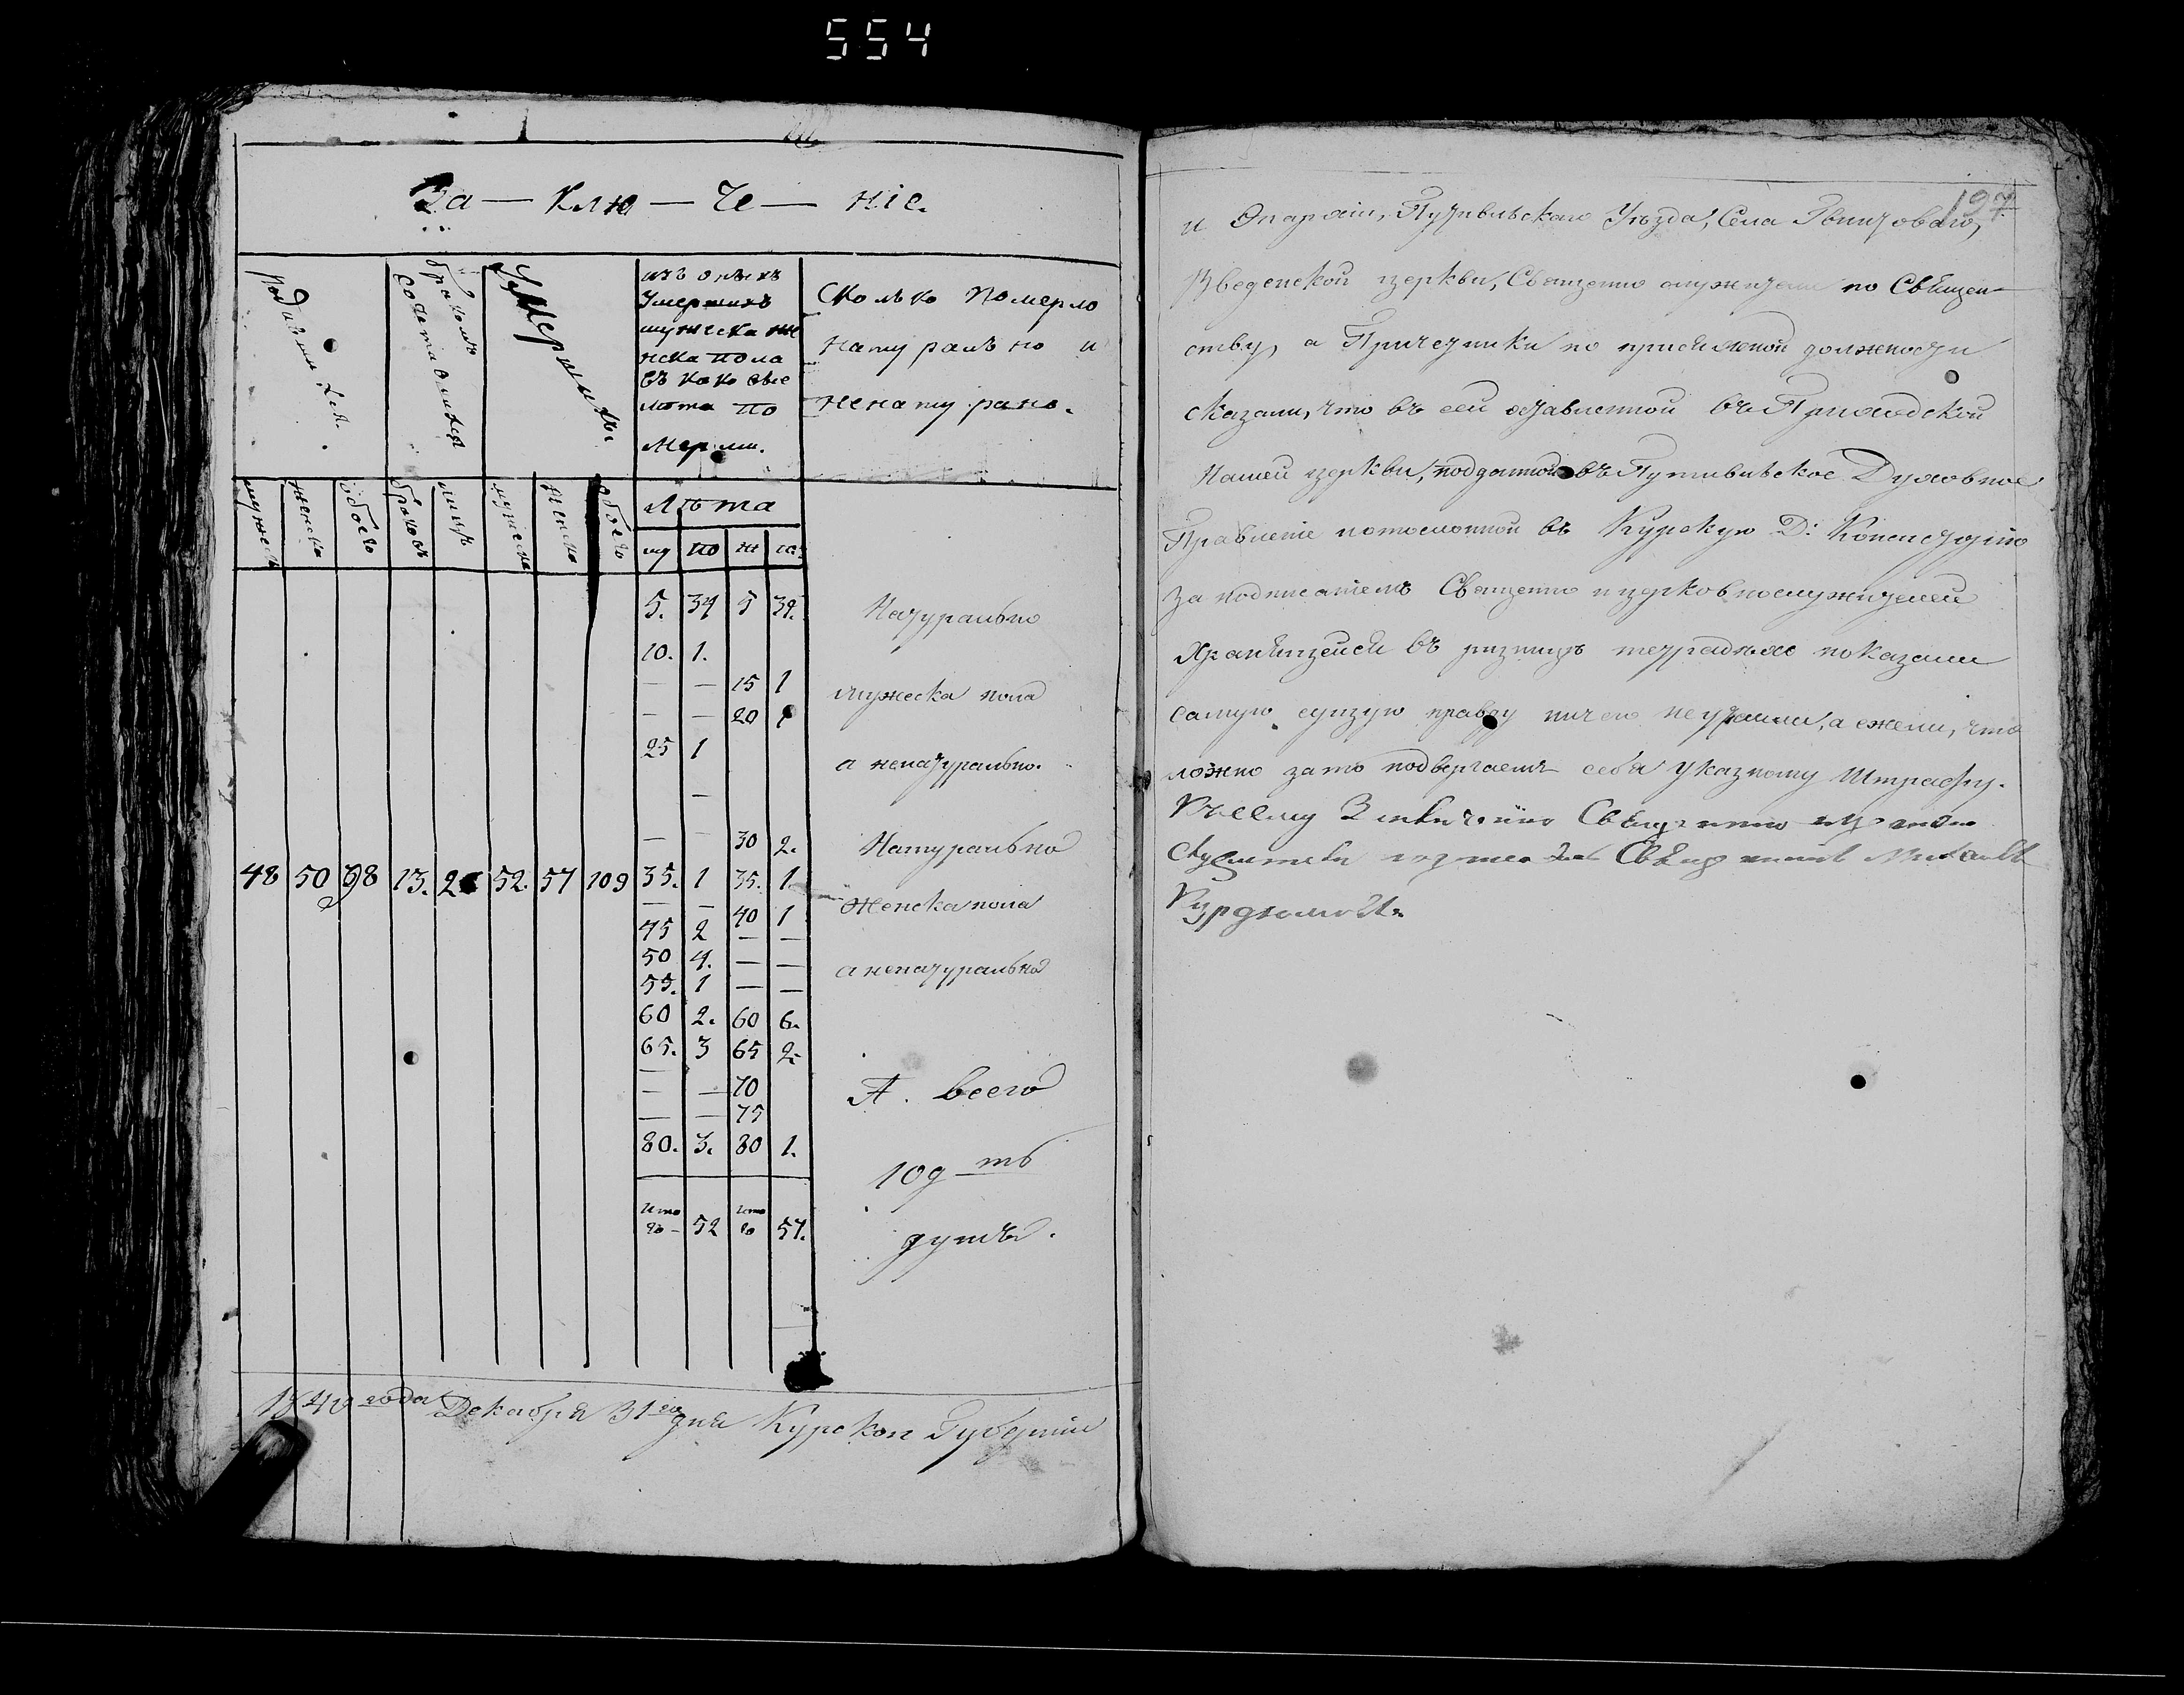 554
За — клю — че — ніе.
Родившихся.
бракомъ
сочетавшихся
Умершихъ
изъ оныхъ
Умершихъ
мужеска же
нска пола
въ како вые
лѣта по
мерли.
Сколько померло
натурально и
ненатурално.
мужеска
женска
обоего
браковъ
лицъ
мужеска
женска
обоего
Лѣта
му по же
5. 34 5 39.
Натурально
10. 1.
— — 15 1
мужеска пола
— — 20 1
25 1
а ненатурально.
—
— — 30 2.
Натурально
48 50 98 13. 26 52. 57 109 35. 1 35. 1.
— — 40 1
Женска пола
45 2 — —
50 4. — —
а ненатурально
55. 1 — —
60 2. 60 6.
65. 3 65 2.
— — 70
А всего
— — 75
80. 3. 80 1.
109 — ть
Ито го — 52 Ито го 57.
душъ.
1840 года Декабря 31го дня Курской Губерніи
197
и Эпархіи, Путивльскаго Уѣзда, Села
Введенской церкви, Священно служители по Священ-
ству, а Причетники по присяжной должности
сказали, что въ сей оставленной въ Приходской
Нашей церкви, подданной въ Путивльское Духовное
Правленіе и отосланной въ Курскую Д: Консисторію
за подписаніемъ Священно и церковнослужителей
Хранящейся въ ризницѣ тетрадяхъ показали
самую сущую правду ничего неутаили, а ежели, что
ложно за то подвергаемъ себя указному Штрафу.
Къ сему Заключенію Священно
служители Священникъ Михаилъ